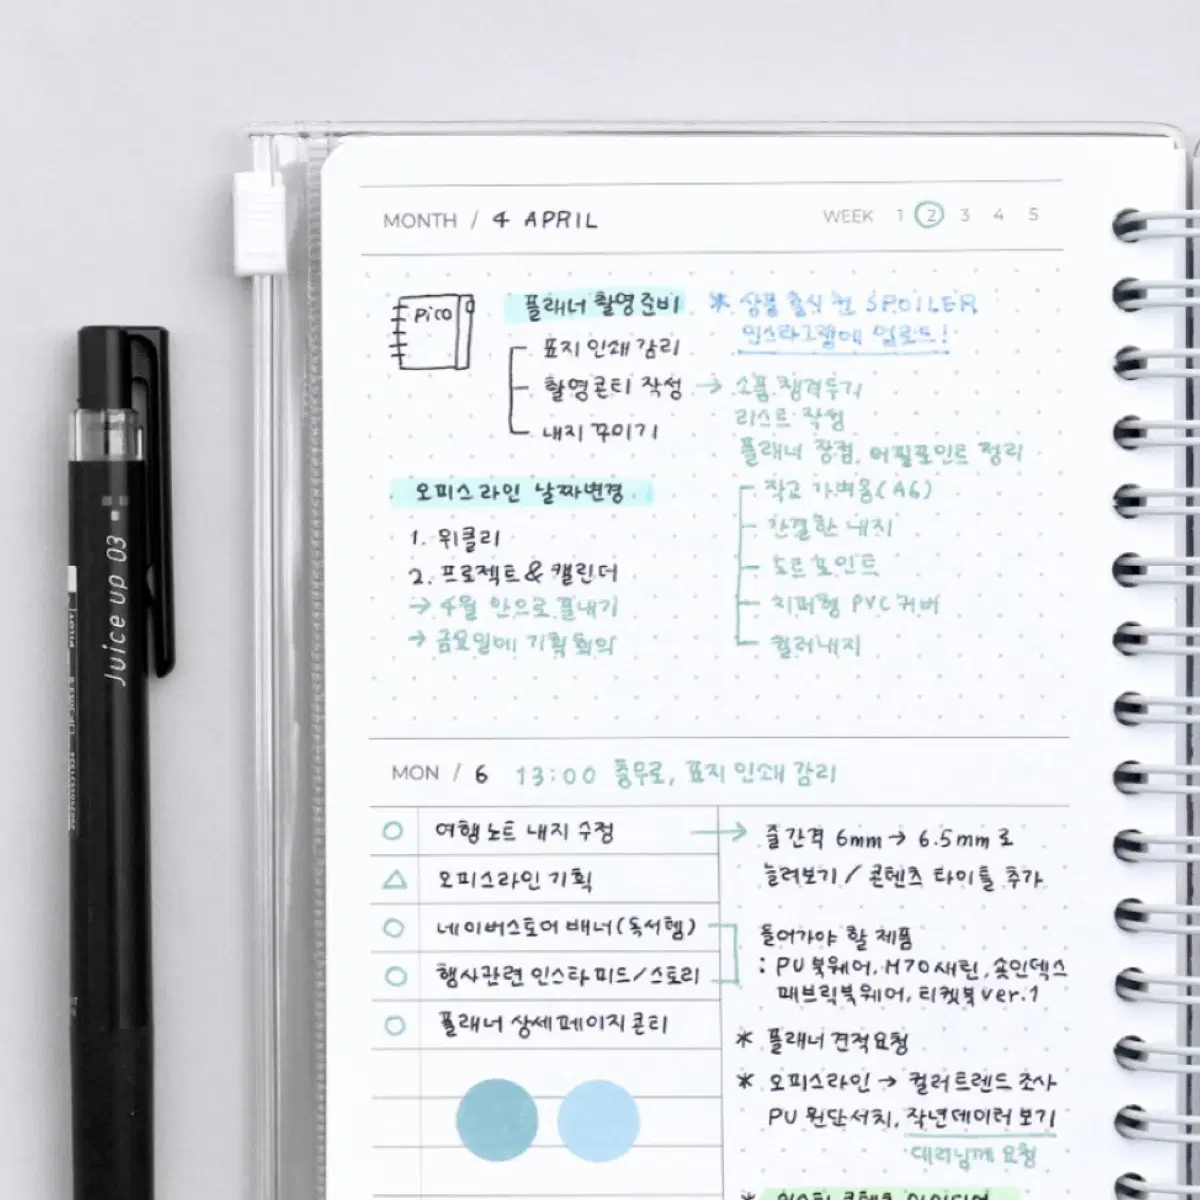 MONTH / 4 APRIL
WEEK 1 2 3 4 5
Pico
플래너 촬영준비
표지 인쇄 감리
촬영콘티 작성 →
내지 꾸미기
* 상품 출시 전 SPOILER
인스타그램에 업로드!
소품 챙겨두기
리스트 작성
플래너 장점, 어필포인트 정리
작고 가벼움(A6)
간결한 내지
도트 포인트
지퍼형 PVC 커버
컬러내지
오피스라인 날짜변경
1. 위클리
2. 프로젝트 & 캘린더
→ 4월 안으로 끝내기
→ 금요일에 기획 회의
MON / 6 13:00 충무로, 표지 인쇄 감리
여행노트 내지 수정 →
오피스라인 기획
네이버스토어 배너(독서템)
행사관련 인스타 피드/스토리
플래너 상세페이지 콘티
줄간격 6mm → 6.5mm 로
늘려보기 / 콘텐츠 타이틀 추가
들어가야 할 제품
: PU 북웨어, M70 새린, 숏인덱스
패브릭북웨어, 티켓북 ver.1
* 플래너 견적요청
* 오피스라인 → 컬러트렌드 조사
PU 원단서치, 작년데이터 보기
대리님께 요청
Juice up 03